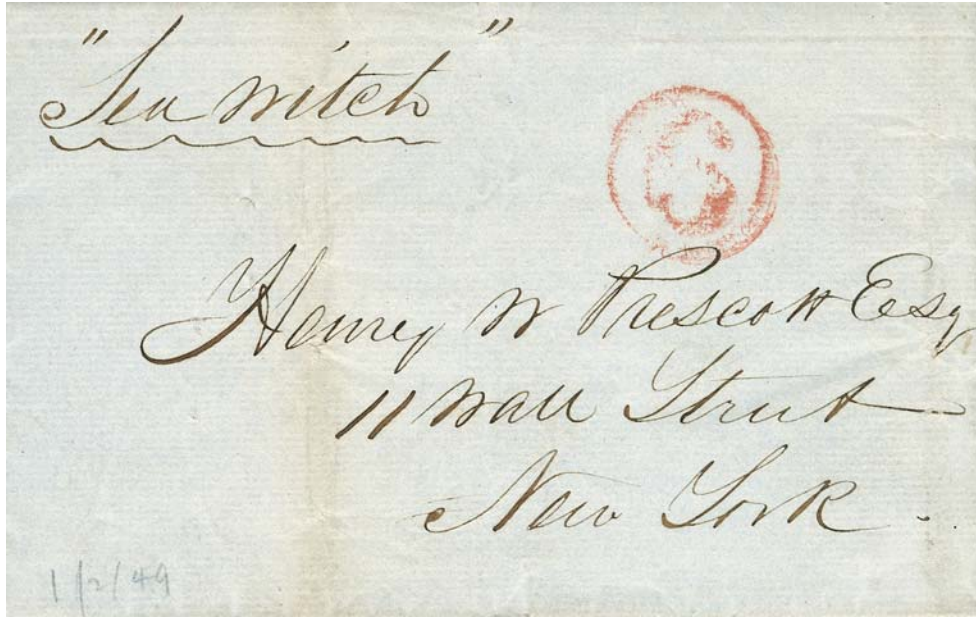 "Sea Witch"
6
Henry W Prescott Esq
11 Wall Street
New York.
1/2/49